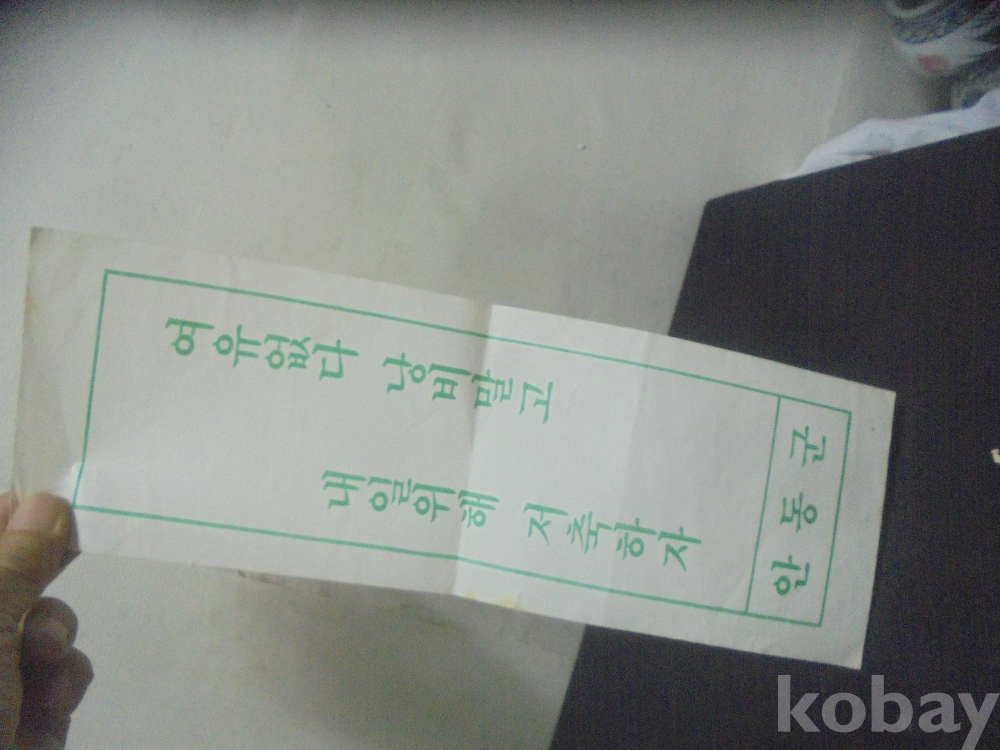 여유없다 낭비말고
내일위해 저축하자
안동군
kobay